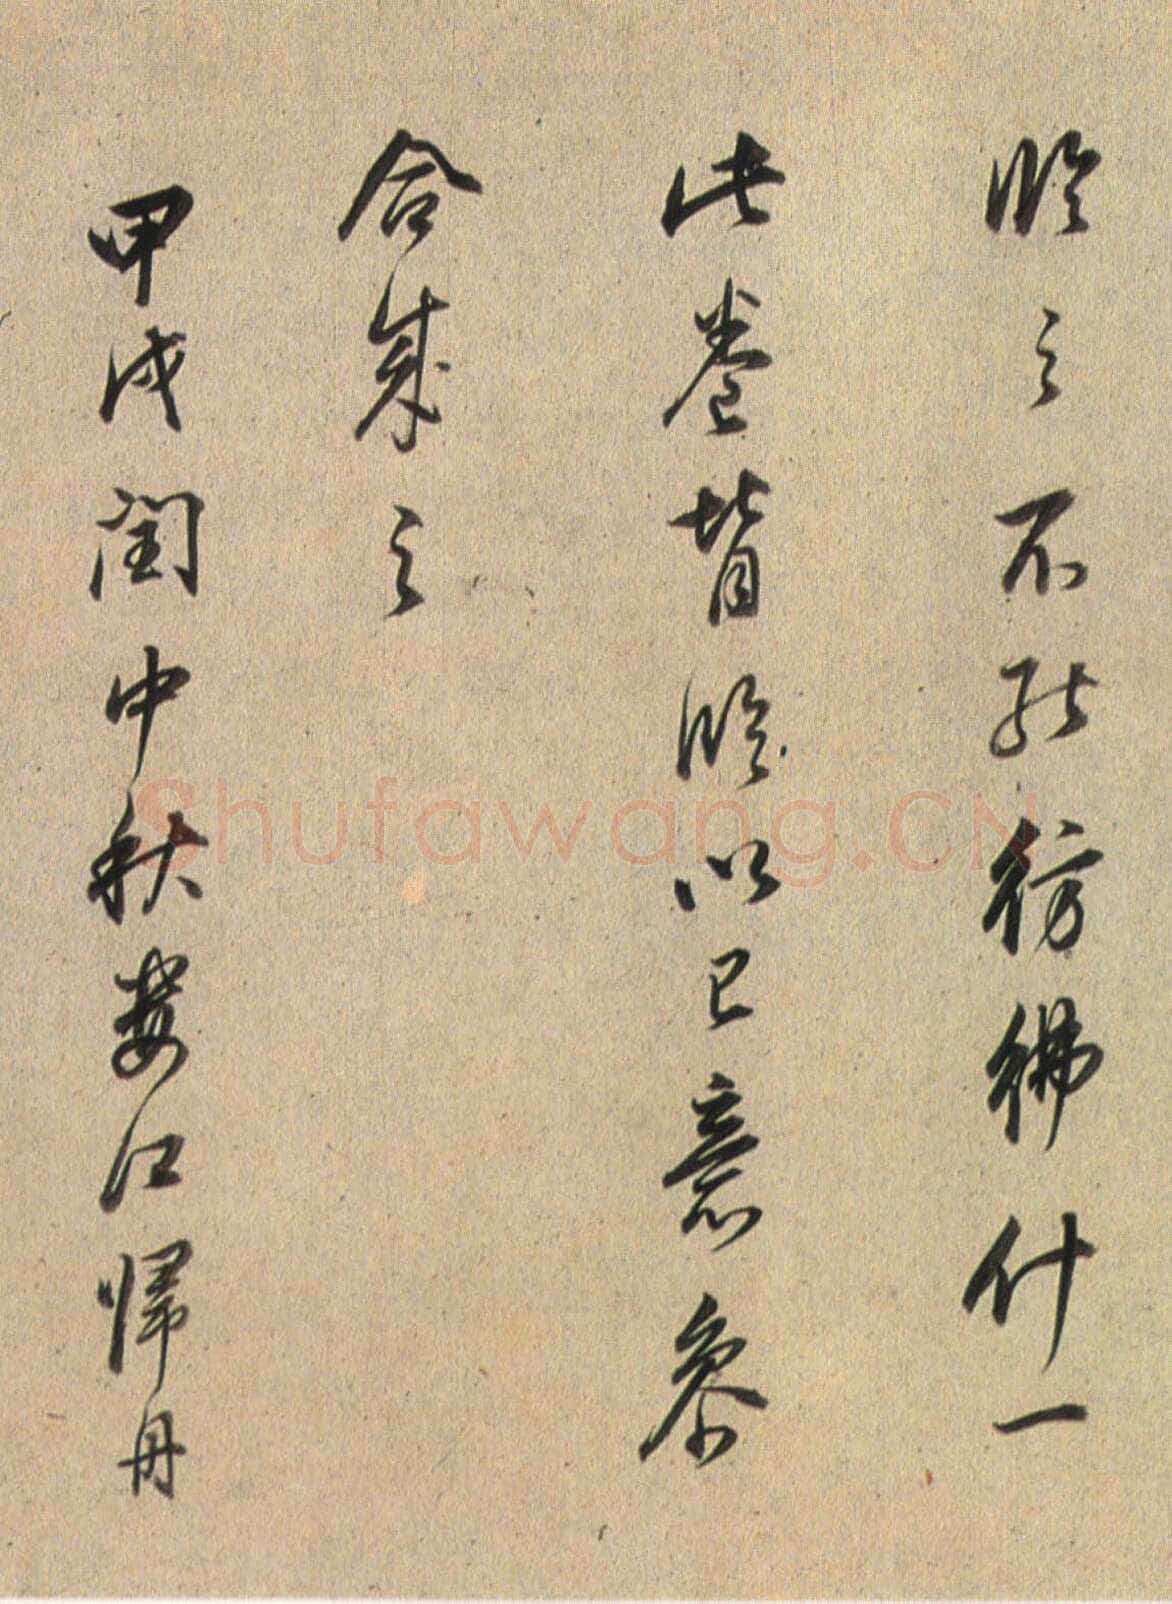 臨之不能彷彿什一
此卷皆臨以己意參
合成之
甲戌閏中秋婁江歸舟
Shufawang.CN